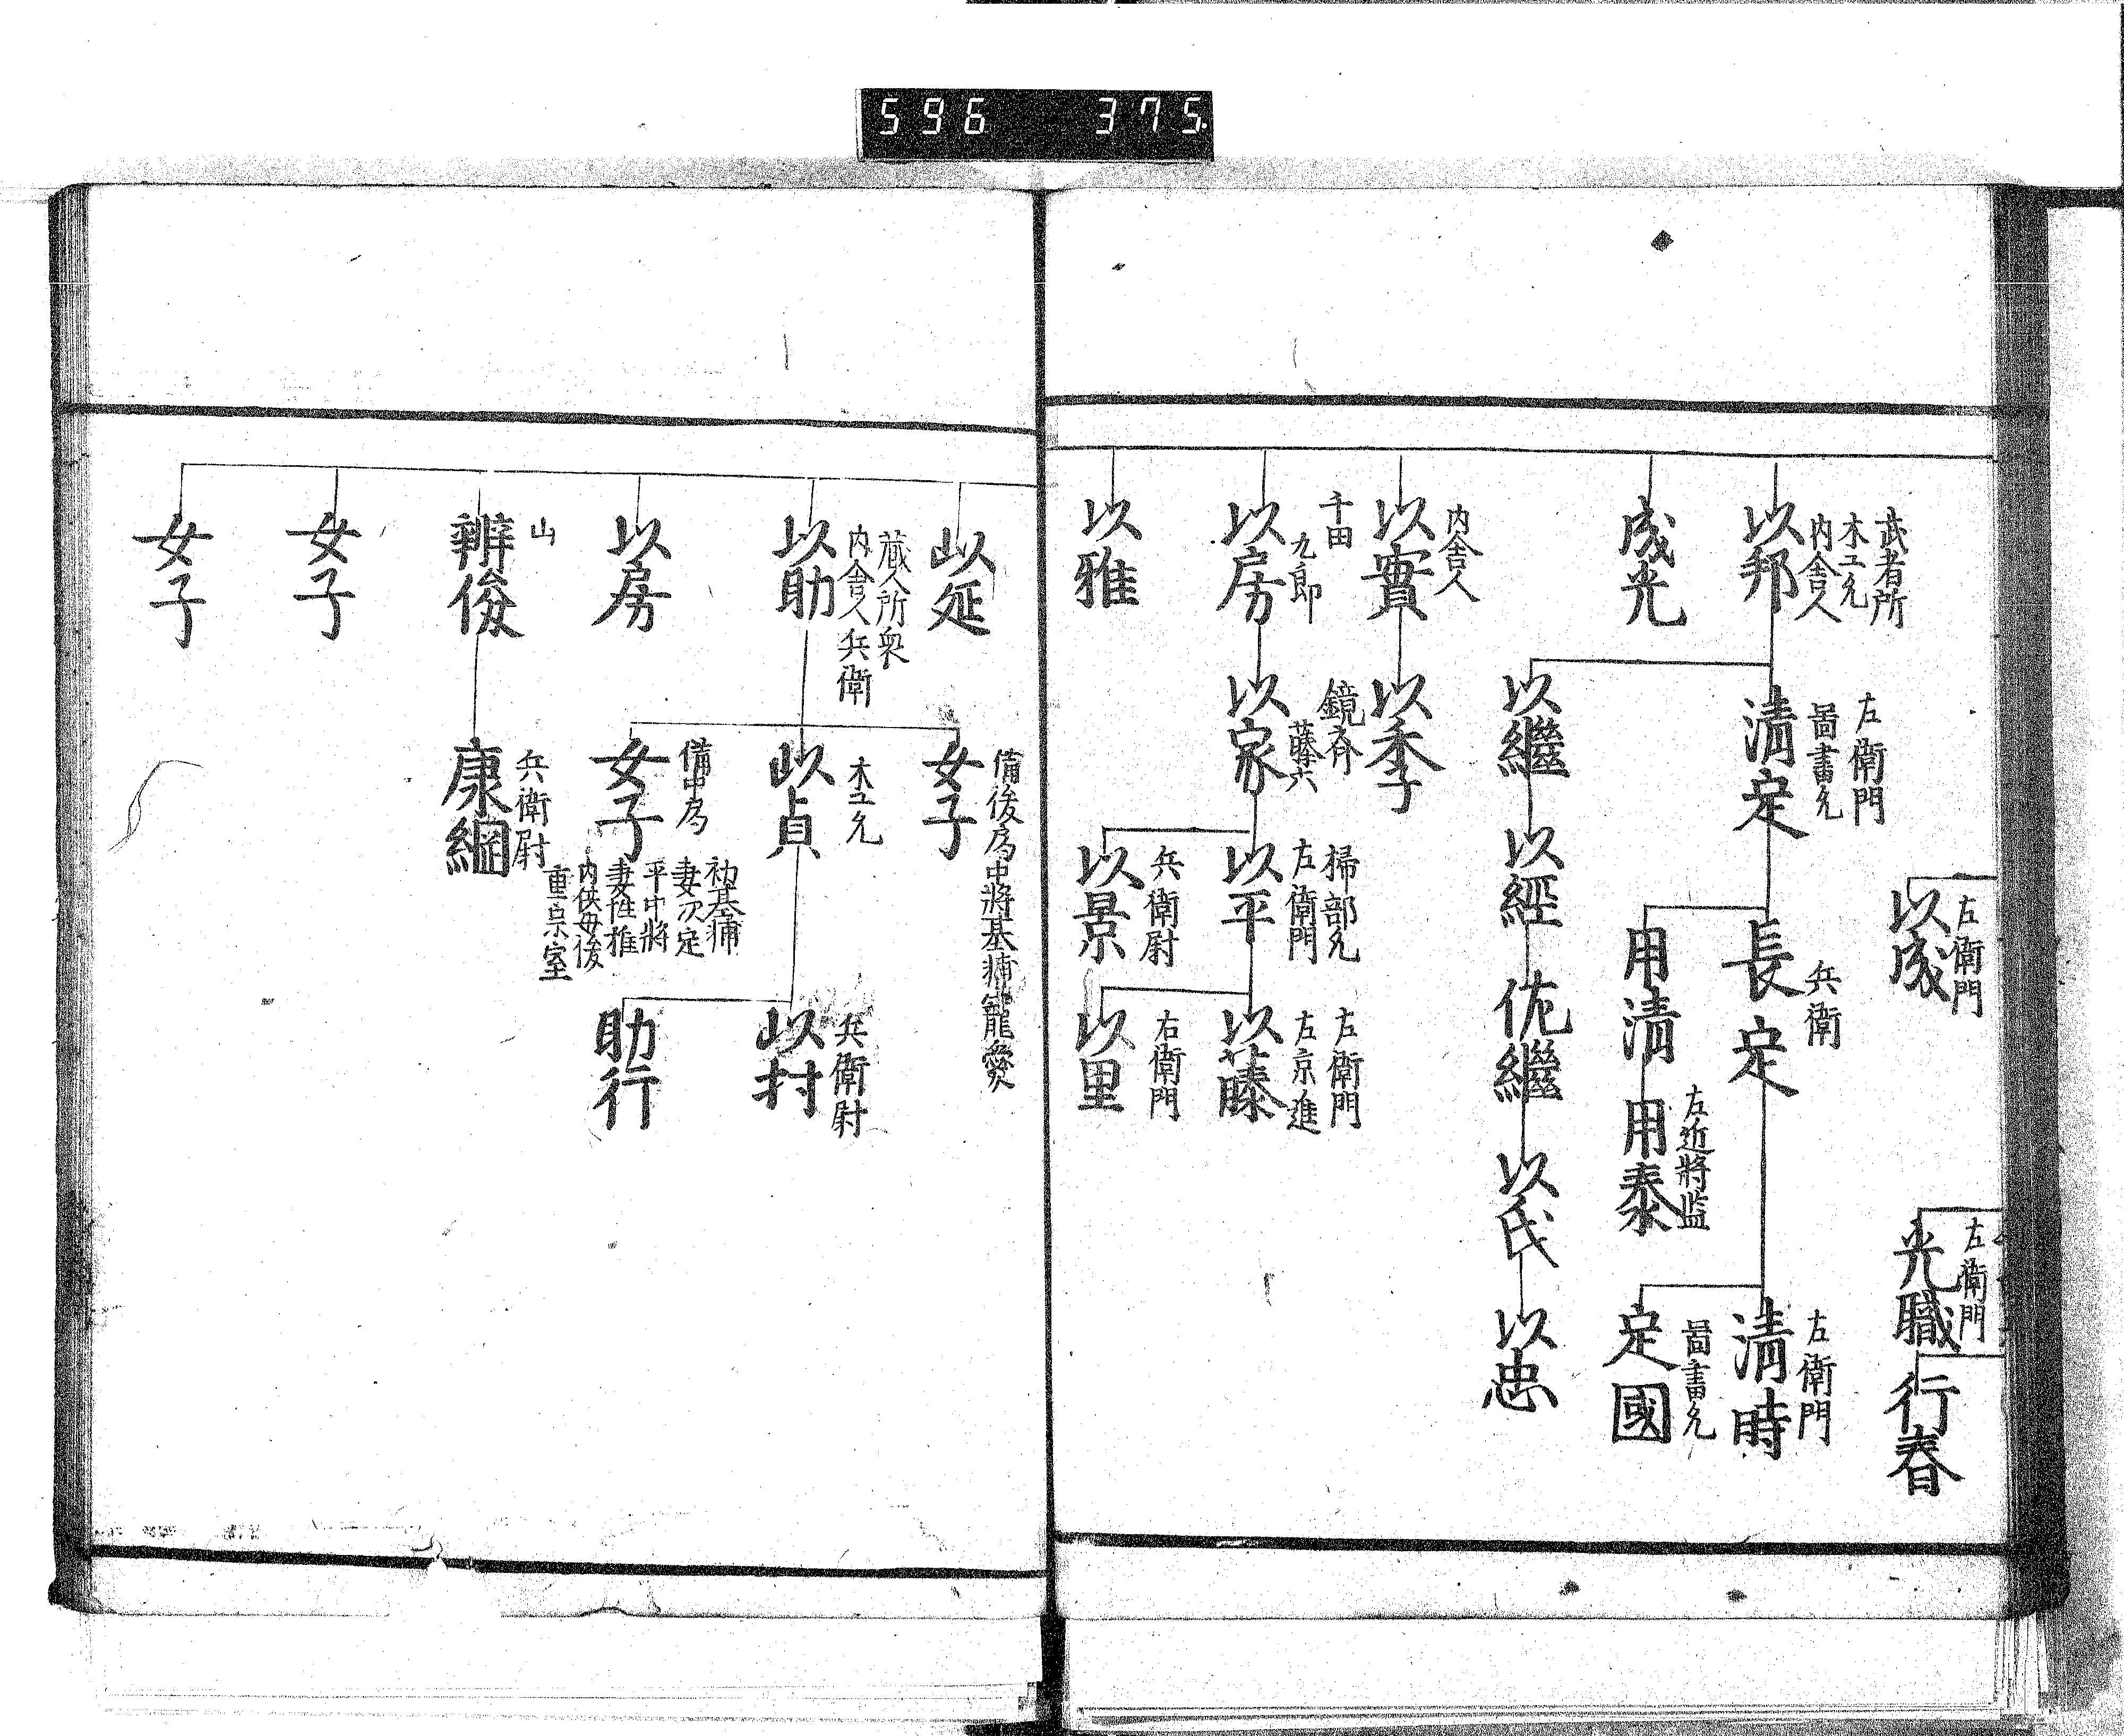 596 375.
左衛門
以成
左衛門
光職
行春
武者所
木工允
内舎人
以邦
左衛門
圖書允
清定
兵衛
長定
左衛門
清時
圖書允
定國
用清
左近將監
用泰
以繼
以經
佐繼
以氏
以忠
成光
内舎人
以實
以季
千田
九郎
以房
鏡斎
藤六
以家
掃部允
左衛門
以平
左衛門
左京進
以藤
兵衛尉
以景
右衛門
以里
以雅
以延
蔵人所衆
内舎人兵衛
以助
備後為中將基浦寵愛
女子
木工允
以貞
兵衛尉
以村
助行
備中為
女子
妻次定
平中將
妻性雅
内供母後
重宗室
以房
山
辨俊
兵衛尉
康綱
女子
女子